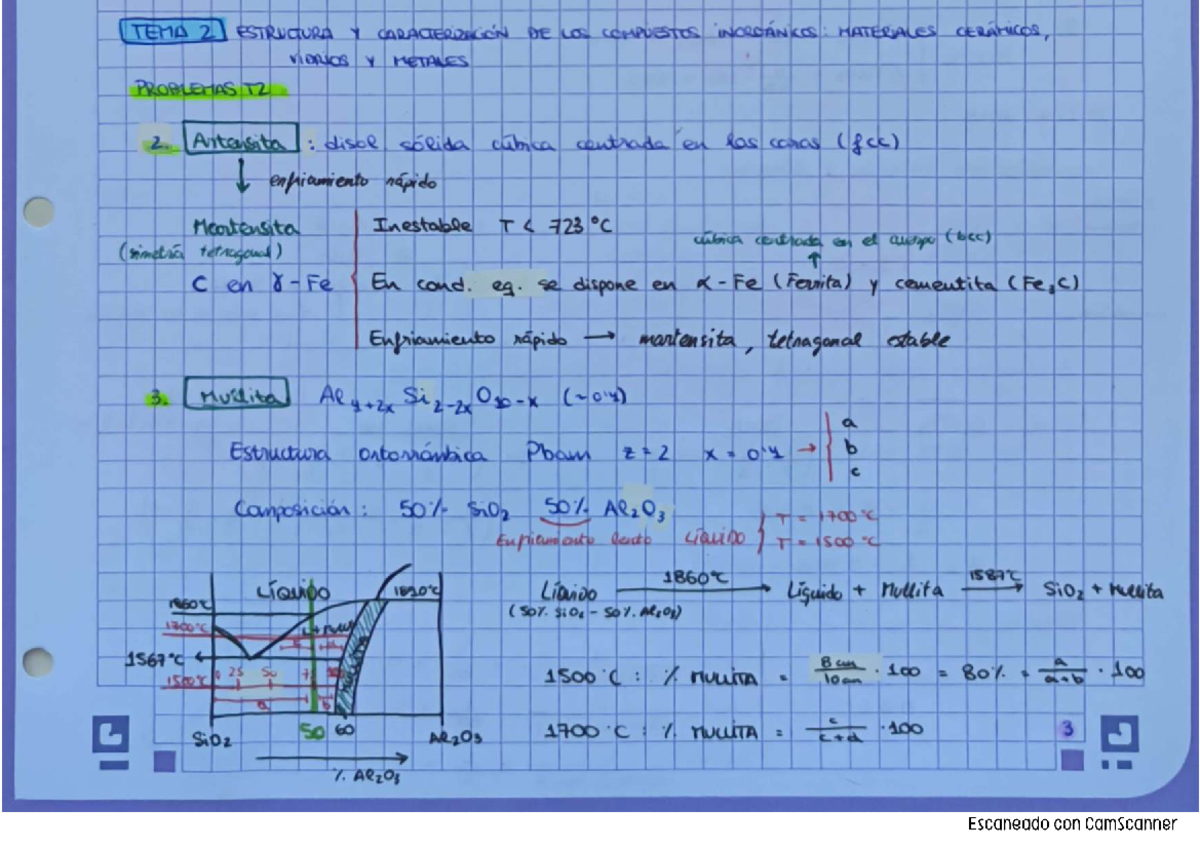 TEMA 2 ESTRUCTURA Y CARACTERIZACIÓN DE LOS COMPUESTOS INORGÁNICOS: MATERIALES CERÁMICOS,
VIDRIOS Y METALES
PROBLEMAS T2
2. Antensita : disol sólida cúbica centrada en las caras (fcc)
↓ enfriamiento rápido
Martensita
(simetría tetragonal)
C en γ-Fe
Inestable T < 723 °C
cúbica centrada en el cuerpo (bcc)
En cond. eq. se dispone en α-Fe (Ferrita) y cementita (Fe3C)
Enfriamiento rápido → martensita, tetragonal estable
3. Mullita Al4+2x Si2-2x O10-x (~0'4)
Estructura ortorrómbica Pbam z=2 x=0'4 → a
b
c
Composición: 50% SiO2 50% Al2O3
Enfriamiento lento líquido T = 1700 °C
T = 1500 °C
Líquido 1860°C → Líquido + Mullita 1587°C → SiO2 + Mullita
(50% SiO2 - 50% Al2O3)
1500 °C : % MULLITA = 8 cm / 10 cm · 100 = 80% = a / a+b · 100
1700 °C : % MULLITA = c / c+d · 100
LÍQUIDO
1860°C
1820°C
1700°C
L+MULL
1567°C
1500°C
25 50
a b
SiO2 50 60 Al2O3
% Al2O3
3
Escaneado con CamScanner